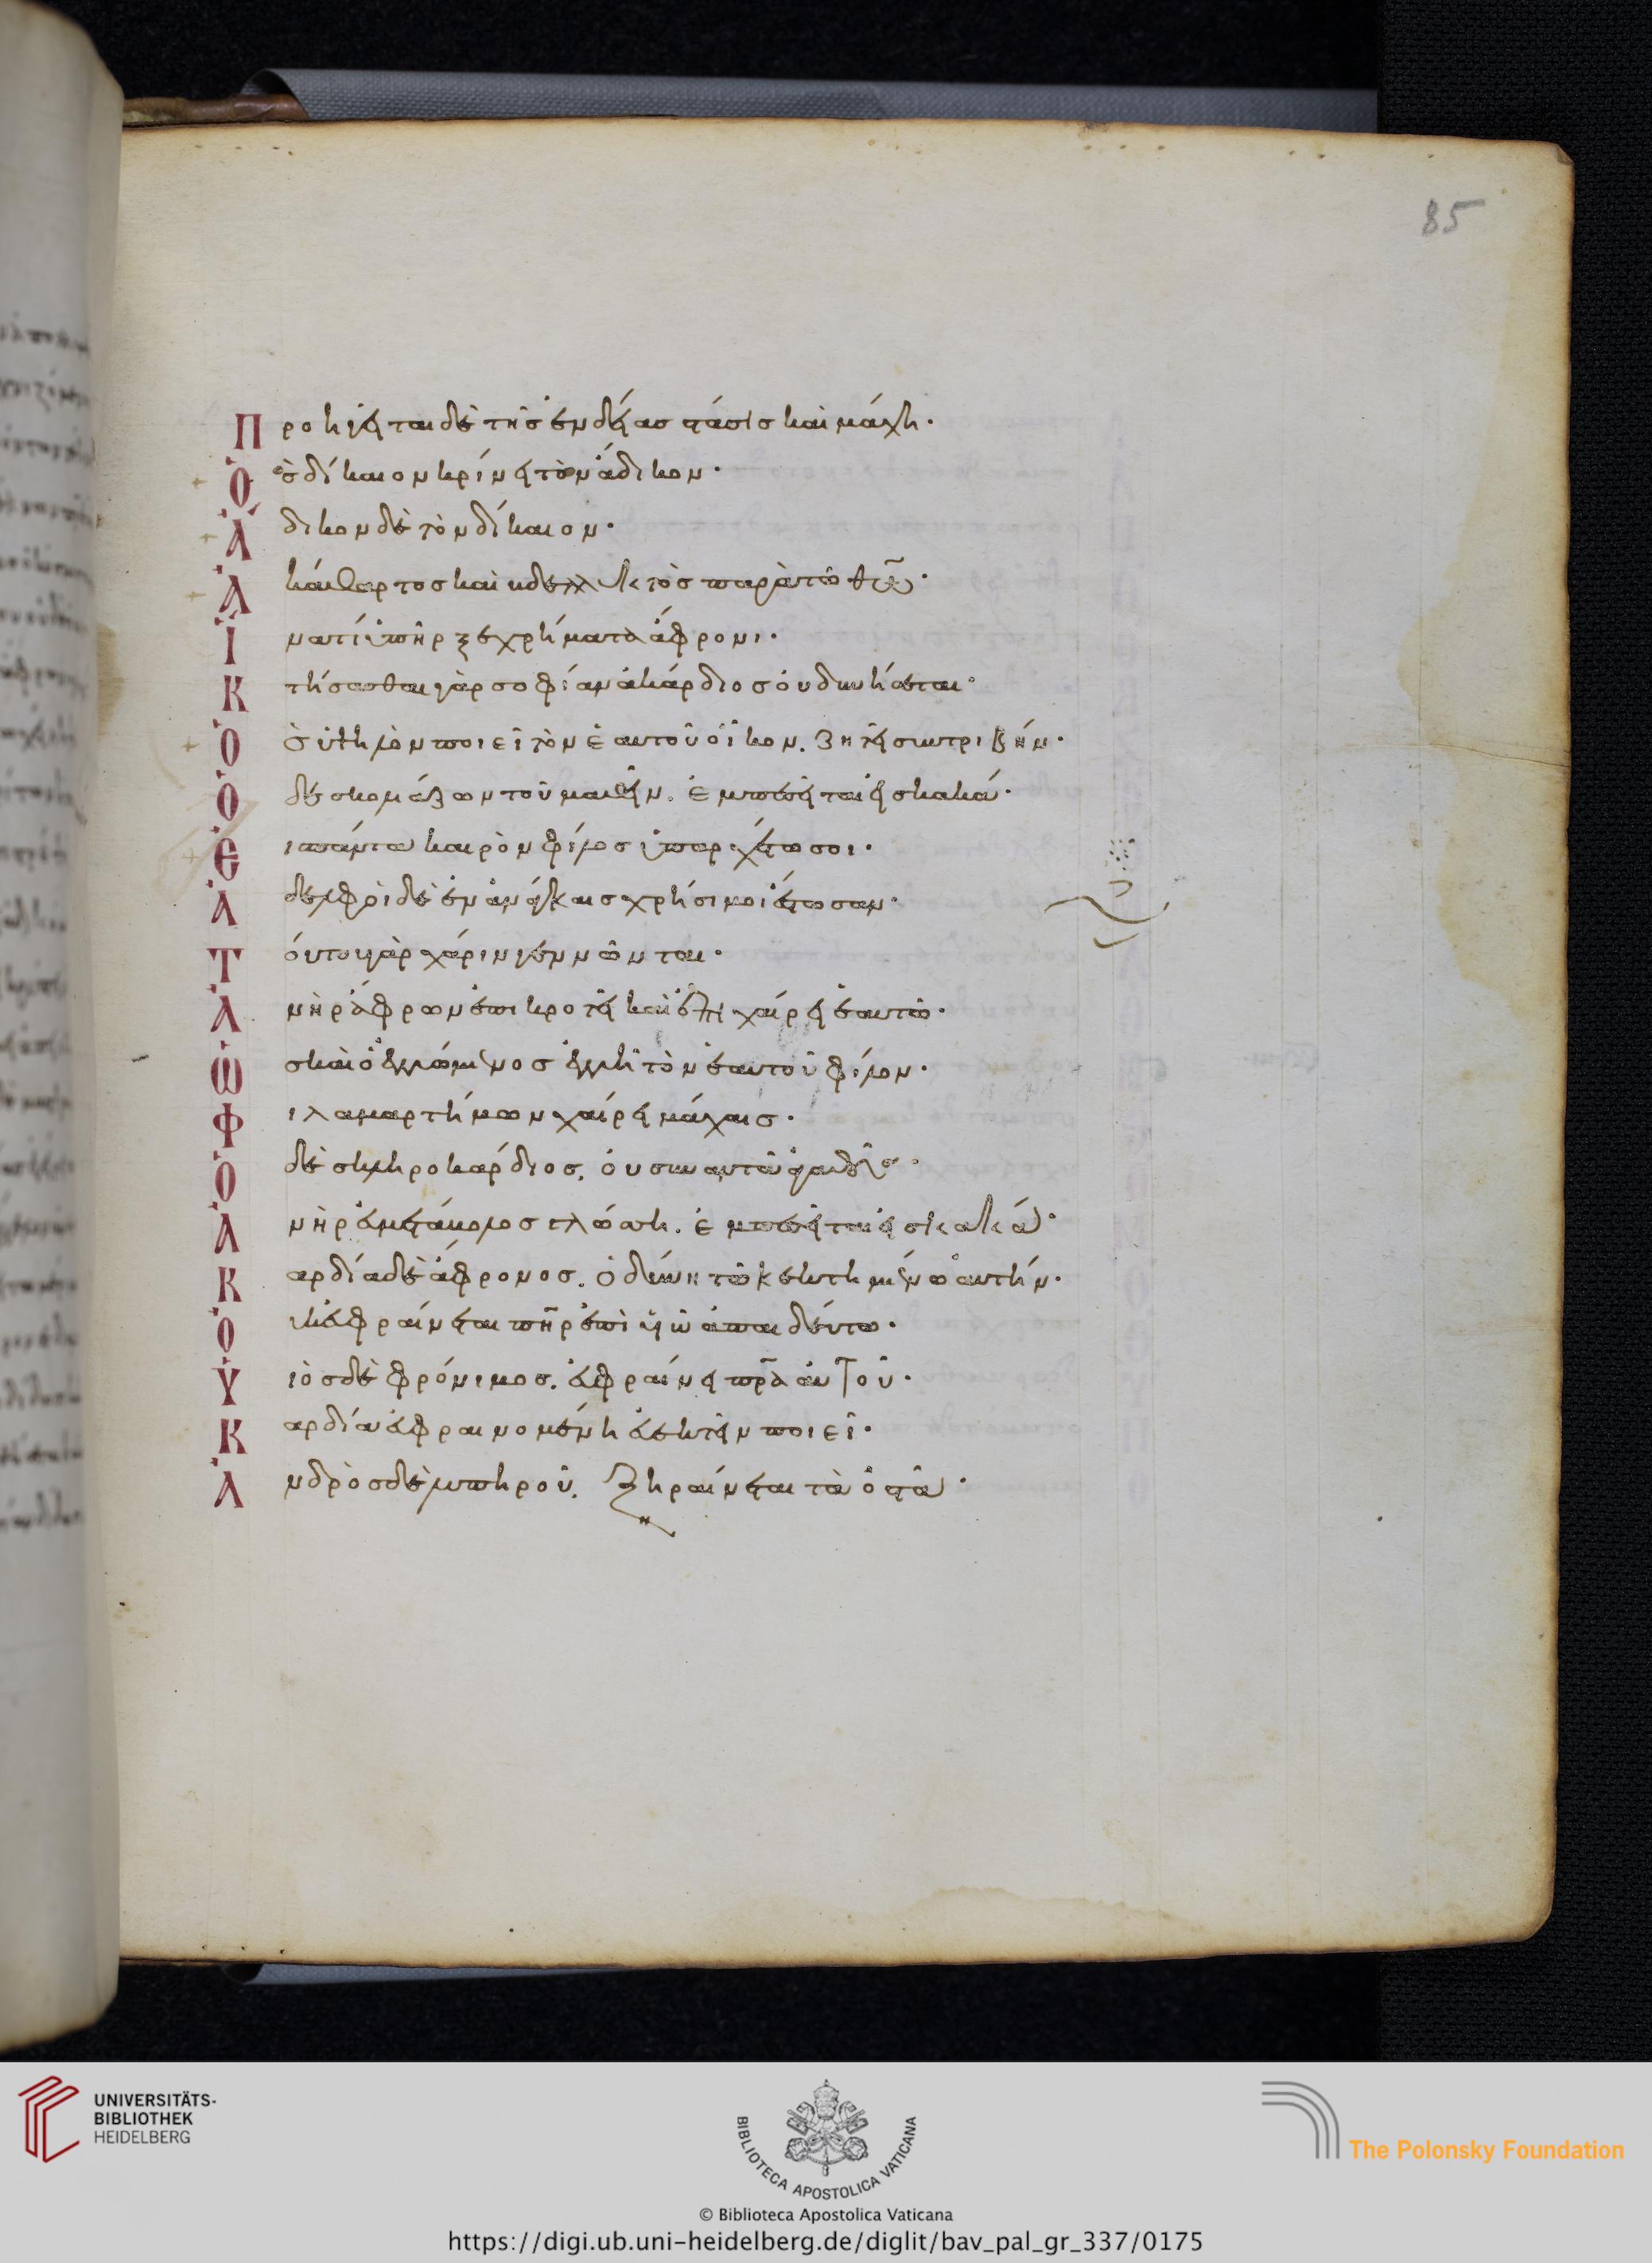 85
Προηγεῖται δὲ τῆς ἐνδείας στάσις καὶ μάχη·
Ὃς δίκαιον κρίνει τὸν ἄδικον·
Ἄδικον δὲ τὸν δίκαιον·
Ἀκάθαρτος καὶ βδελυκτὸς παρὰ τῶ θῶ·
Ἱνατί ὑπῆρξε χρήματα ἄφρονι·
Κτήσασθαι γὰρ σοφίαν ἀκάρδιος οὐ δυνήσεται·
Ὃς ὑψηλὸν ποιεῖ τὸν ἑαυτοῦ οἶκον. ζητεῖ συντριβήν·
Ὁ δὲ σκολιάζων τοῦ μαθεῖν. ἐμπεσεῖται εἰς κακά·
Εἰς πάντα καιρὸν φίλος ὑπαρχέτω σοι·
Ἀδελφοὶ δὲ ἐν ἀνάγκαις χρήσιμοι ἔστωσαν·
Τούτου γὰρ χάριν γεννῶνται·
Ἀνὴρ ἄφρων ἐπικροτεῖ καὶ ἐπιχαίρει ἑαυτῶ·
Ὡς καὶ ὁ ἐγγυώμενος ἐγγύη τὸν ἑαυτοῦ φίλον·
Φιλαμαρτήμων χαίρει μάχαις·
Ὁ δὲ σκληροκάρδιος. οὐ συναντᾶ ἀγαθοῖς·
Ἀνὴρ εὐμετάβολος γλώσση. ἐμπεσεῖται εἰς κακά·
Καρδία δὲ ἄφρονος. ὀδύνη τῶ κεκτημένω αὐτήν·
Οὐκ εὐφραίνεται πηρ ἐπὶ υἱῶ ἀπαιδεύτω·
Υἱὸς δὲ φρόνιμος. εὐφραίνει πρα αὐτοῦ·
Καρδία εὐφραινομένη εὐεκτεῖν ποιεῖ·
Ἀνδρὸς δὲ λυπηροῦ. ξηραίνεται τὰ ὀστᾶ·
UNIVERSITÄTS-
BIBLIOTHEK
HEIDELBERG
BIBLIOTECA APOSTOLICA VATICANA
The Polonsky Foundation
© Biblioteca Apostolica Vaticana
https://digi.ub.uni-heidelberg.de/diglit/bav_pal_gr_337/0175